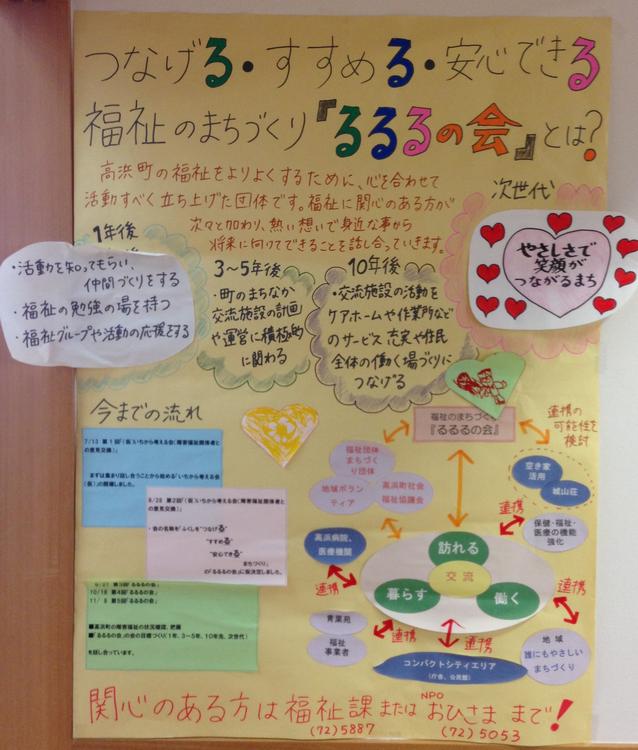 つなげる・すすめる・安心できる
福祉のまちづくり『るるるの会』とは?
高浜町の福祉をよりよくするために、心を合わせて
活動すべく立ち上げた団体です。福祉に関心のある方が
次々と加わり、熱い想いで身近な事から
将来に向けてできることを話し合っていきます。
1年後
・活動を知ってもらい、
仲間づくりをする
・福祉の勉強の場を持つ
・福祉グループや活動の応援をする
3〜5年後
・町のまちなか
交流施設の計画
や運営に積極的
に関わる
10年後
・交流施設の活動を
ケアホームや作業所など
のサービス充実や住民
全体の働く場づくりに
つなげる
次世代
やさしさで
笑顔が
つながるまち
今までの流れ
7/13 第1回「(仮)いちから考える会(障害福祉関係者と
の意見交換)」
まずは集まり話し合うことから始める「いちから考える会
(仮)」の開催しました。
8/28 第2回「(仮)いちから考える会(障害福祉関係者と
の意見交換)」
・会の名称を「ふくしを"つなげる"
"すすめる"
"安心できる"
まちづくり」
の「るるるの会」に仮決定しました。
9/21 第3回「るるるの会」
10/18 第4回「るるるの会」
11/8 第5回「るるるの会」
■高浜町の障害福祉の状況確認、把握
■「るるるの会」の会の目標づくり(1年、3〜5年、10年先、次世代)
を話し合っています。
福祉のまちづくり
『るるるの会』
連携の
可能性を
検討
福祉団体
まちづく
り団体
地域ボラン
ティア
高浜町社会
福祉協議会
空き家
活用
城山荘
連携
保健・福祉・
医療の機能
強化
高浜病院、
医療機関
訪れる
交流
暮らす
働く
連携
連携
青葉苑
福祉
事業者
連携
連携
地域
誰にもやさしい
まちづくり
コンパクトシティエリア
(庁舎、公民館)
関心のある方は福祉課またはNPOおひさままで!
(72)5887
(72)5053